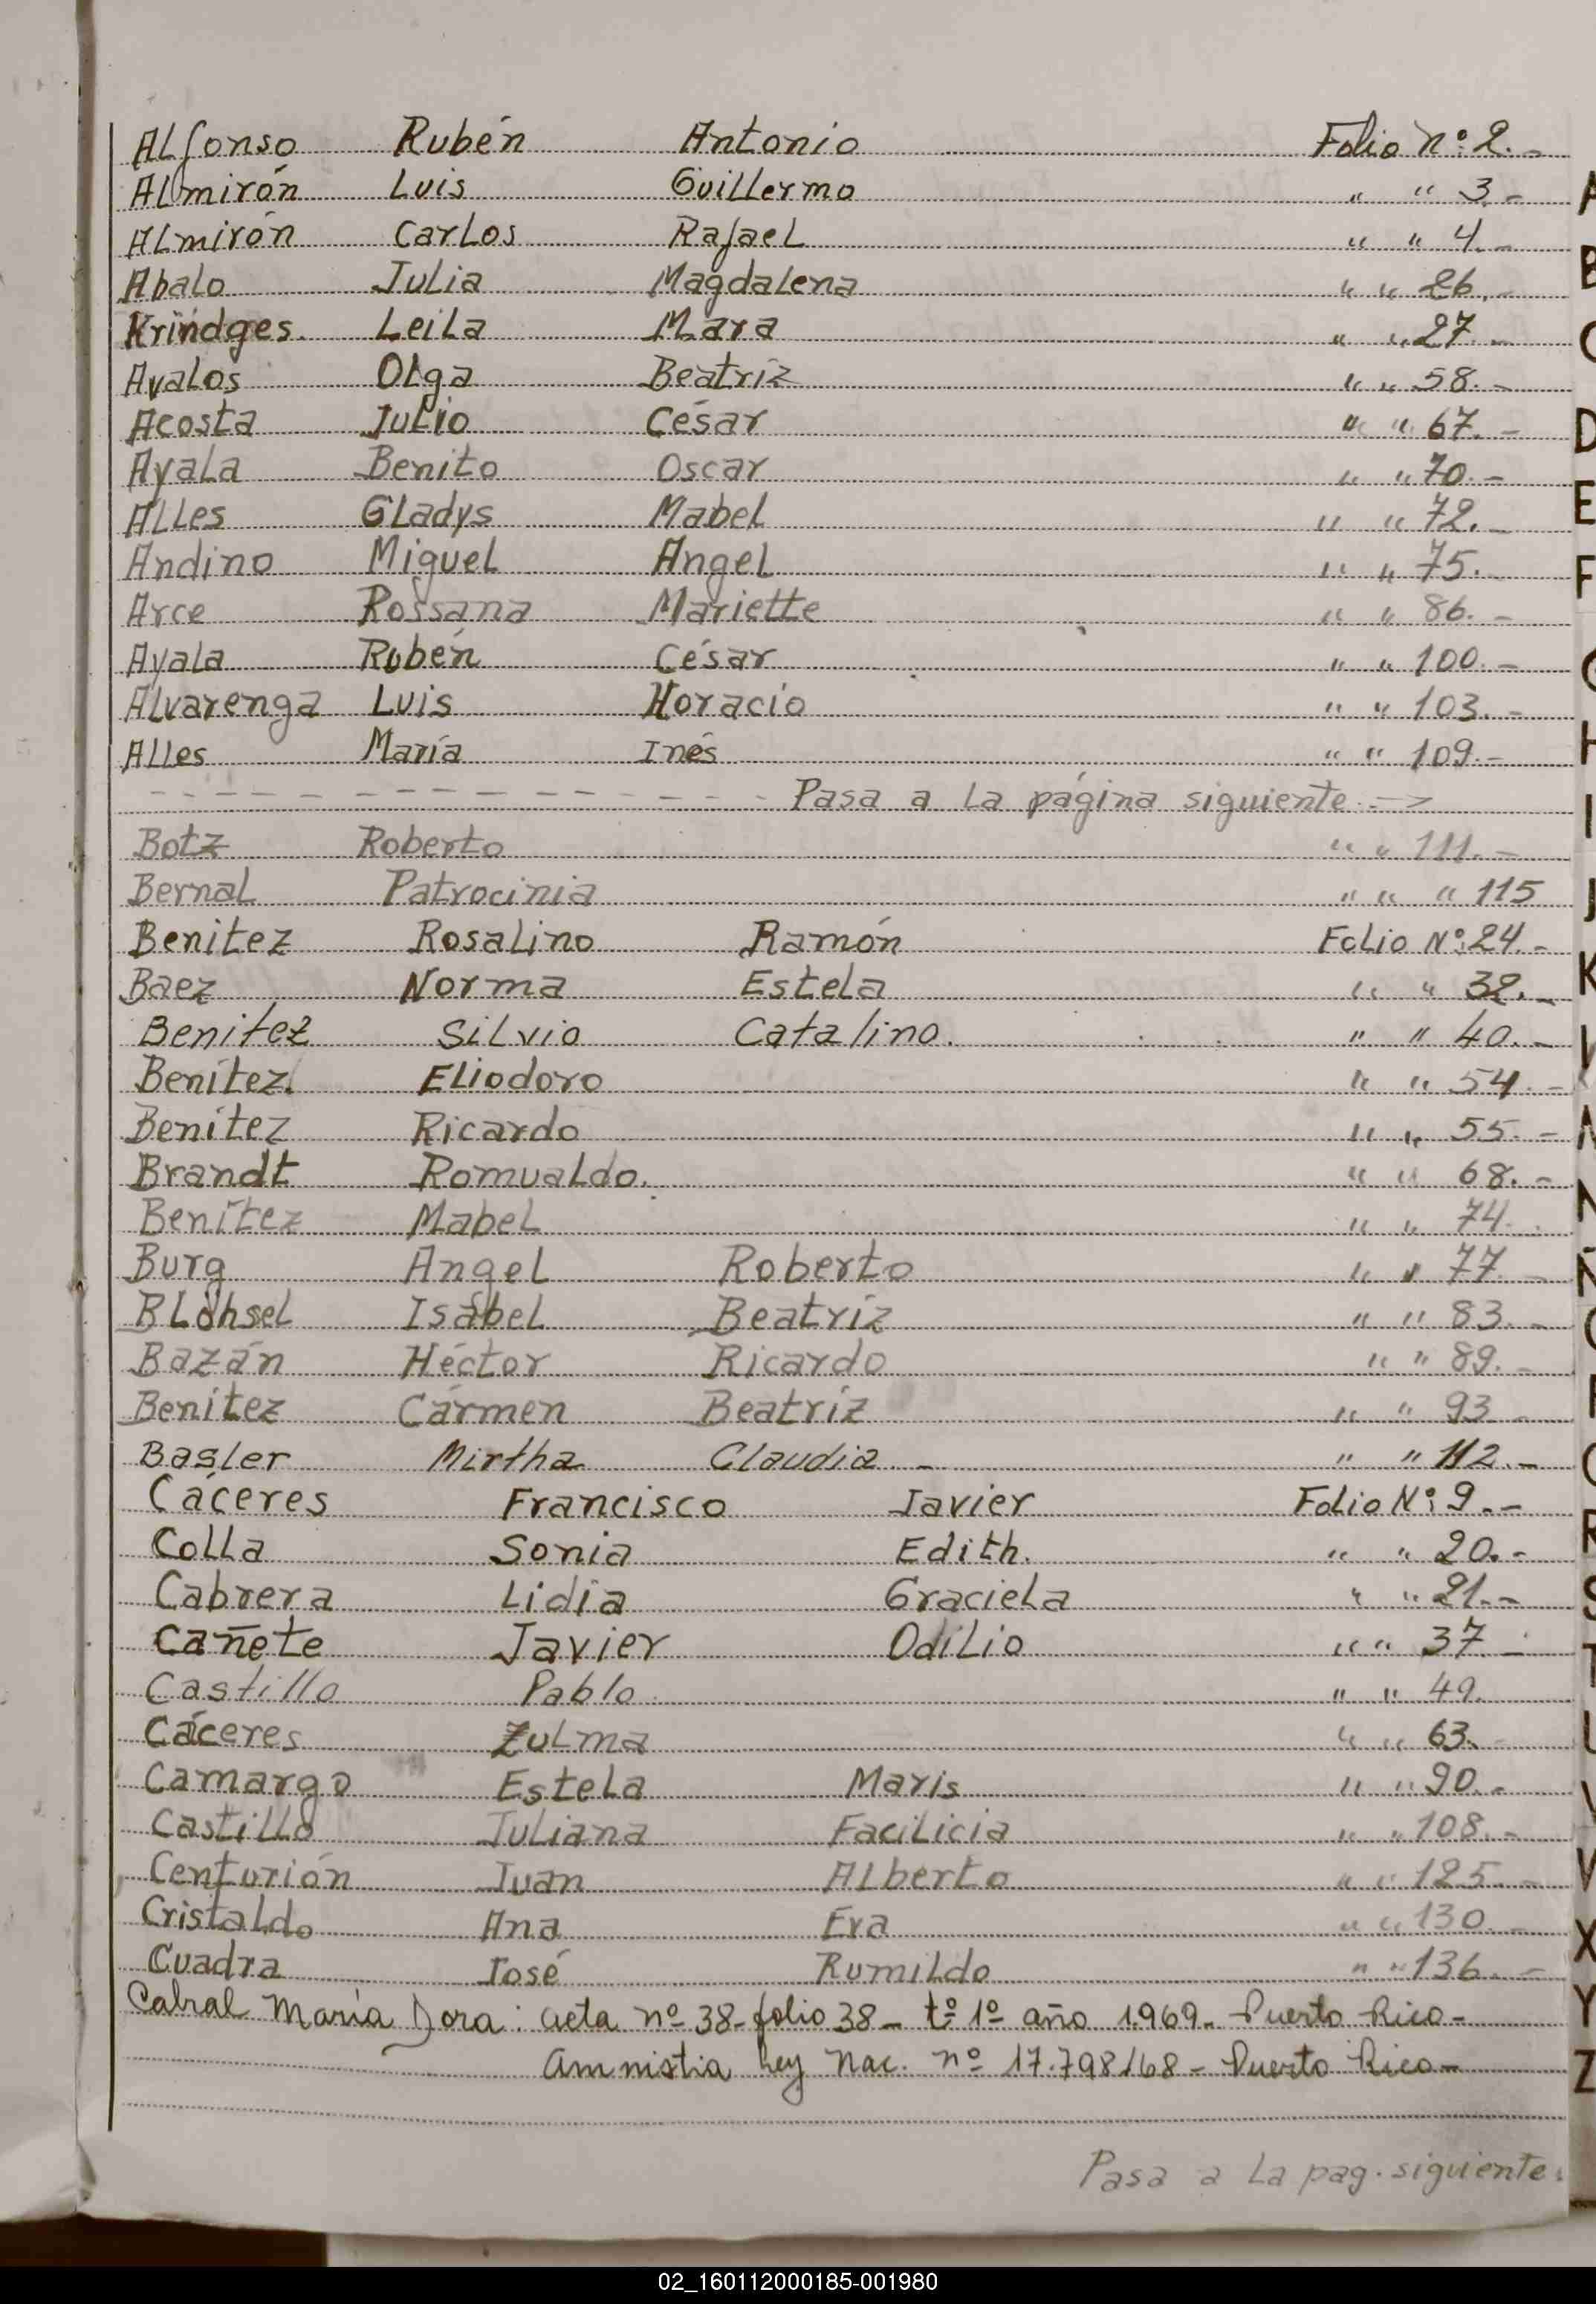 Alfonso Rubén Antonio Folio Nº: 2.-
Almirón Luis Guillermo " " 3.-
Almirón Carlos Rafael " " 4.-
Abalo Julia Magdalena " " 26.-
Krindges. Leila Mara " " 27.-
Avalos Olga Beatríz " " 58.-
Acosta Julio César " " 67.-
Ayala Benito Oscar " " 70.-
Alles Gladys Mabel " " 72.-
Andino Miguel Angel " " 75.-
Arce Rossana Mariette " " 86.-
Ayala Rubén César " " 100.-
Alvarenga Luis Horacio " " 103.-
Alles María Inés " " 109.-
Pasa a La página siguiente -->
Botz Roberto " " 111.-
Bernal Patrocinia " " " 115
Benitez Rosalino Ramón Folio Nº: 24.-
Baez Norma Estela " " 32.-
Benitez Silvio Catalino. " " 40.-
Benítez. Eliodoro " " 54.-
Benítez Ricardo " " 55.-
Brandt Romualdo. " " 68.-
Benítez Mabel " " 74.
Burg Angel Roberto " " 77.-
Blöhsel Isabel Beatríz " " 83.-
Bazán Héctor Ricardo " " 89.-
Benítez Carmen Beatríz " " 93.-
Basler Mirtha Claudia.- " " 112.-
Cáceres Francisco Javier Folio Nº: 9.-
Colla Sonia Edith. " " 20.-
Cabrera Lidia Graciela " " 21.-
Cañete Javier Odilio " " 37.-
Castillo Pablo " " 49.
Cáceres Zulma " " 63.-
Camargo Estela Maris " " 90.-
Castillo Juliana Facilicia " " 108.-
Centurión Juan Alberto " " 125.-
Cristaldo Ana Eva " " 130.-
Cuadra José Rumildo " " 136.-
Cabral María Dora: acta nº 38- folio 38- tº 1º año 1.969- Puerto Rico-
Amnistia Ley Nac. nº 17.798/68- Puerto Rico-
Pasa a La pag. siguiente.
A
B
C
D
E
F
G
H
I
J
K
N
Ñ
R
S
T
U
V
X
Y
Z
02_160112000185-001980